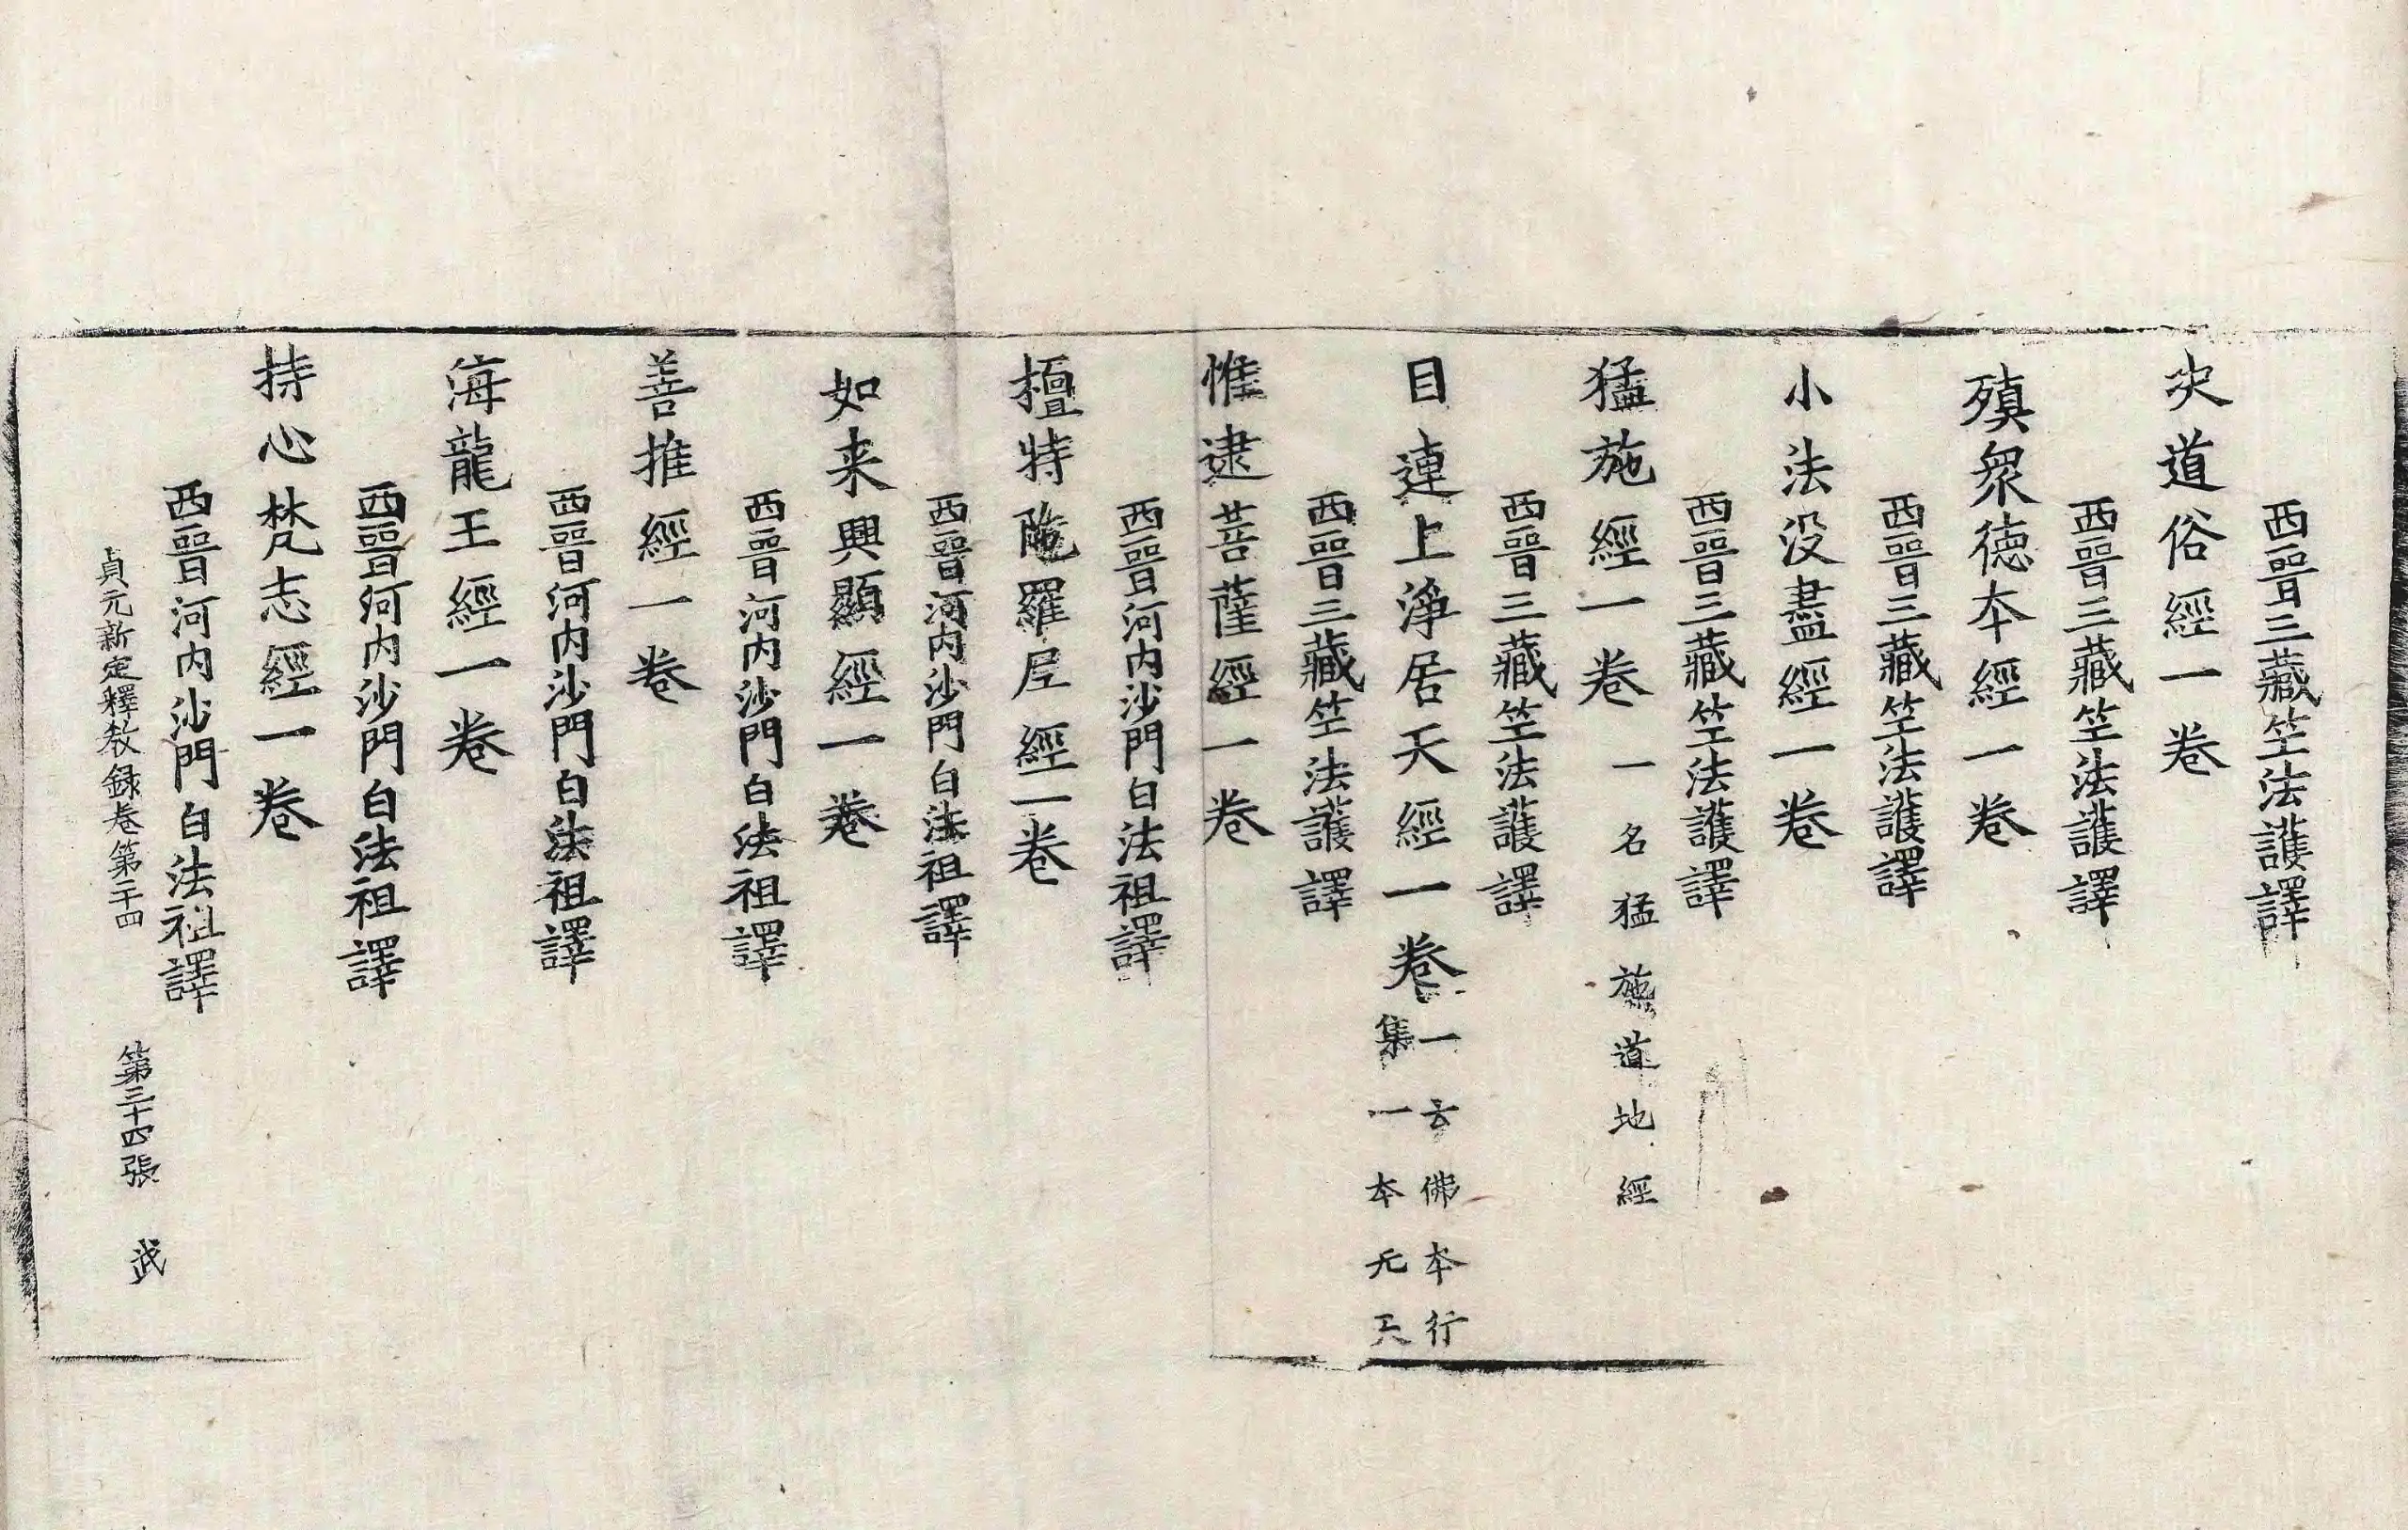 西晉三藏竺法護譯
決道俗經一卷
西晉三藏竺法護譯
殖衆德本經一卷
西晉三藏竺法護譯
小法没盡經一卷
西晉三藏竺法護譯
猛施經一卷 一名猛施道地經
西晉三藏竺法護譯
目連上淨居天經一卷 一云佛本行
集一本无天
西晉三藏竺法護譯
惟逮菩薩經一卷
西晉河内沙門白法祖譯
檀特陁羅尼經一卷
西晉河内沙門白法祖譯
如来興顯經一卷
西晉河内沙門白法祖譯
善推經一卷
西晉河内沙門白法祖譯
海龍王經一卷
西晉河内沙門白法祖譯
持心梵志經一卷
西晉河内沙門白法祖譯
貞元新定釋教録卷第二十四 第三十四張 武